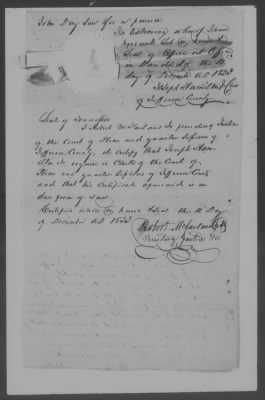 John Day Law for a pension
In testimony whereof I have
hereunto Set my
Seal of Office at Office
in Dandridge the 11
day of December AD 1832
Joseph Hamilton Clk
of Jefferson County
State of Tennessee
I Robert McFarland Presiding Justice
of the Court of Pleas and quarter Sessions of
Jefferson County, do Certify that Joseph Ham
ilton Esqr is Clerk of the Court of
Pleas and quarter Sessions of Jefferson County
and that his Certificate aforesaid is in
due form of Law
Certified under my hand & Seal the 11 Day
of December AD 1832
Robert McFarland
Presiding Justice